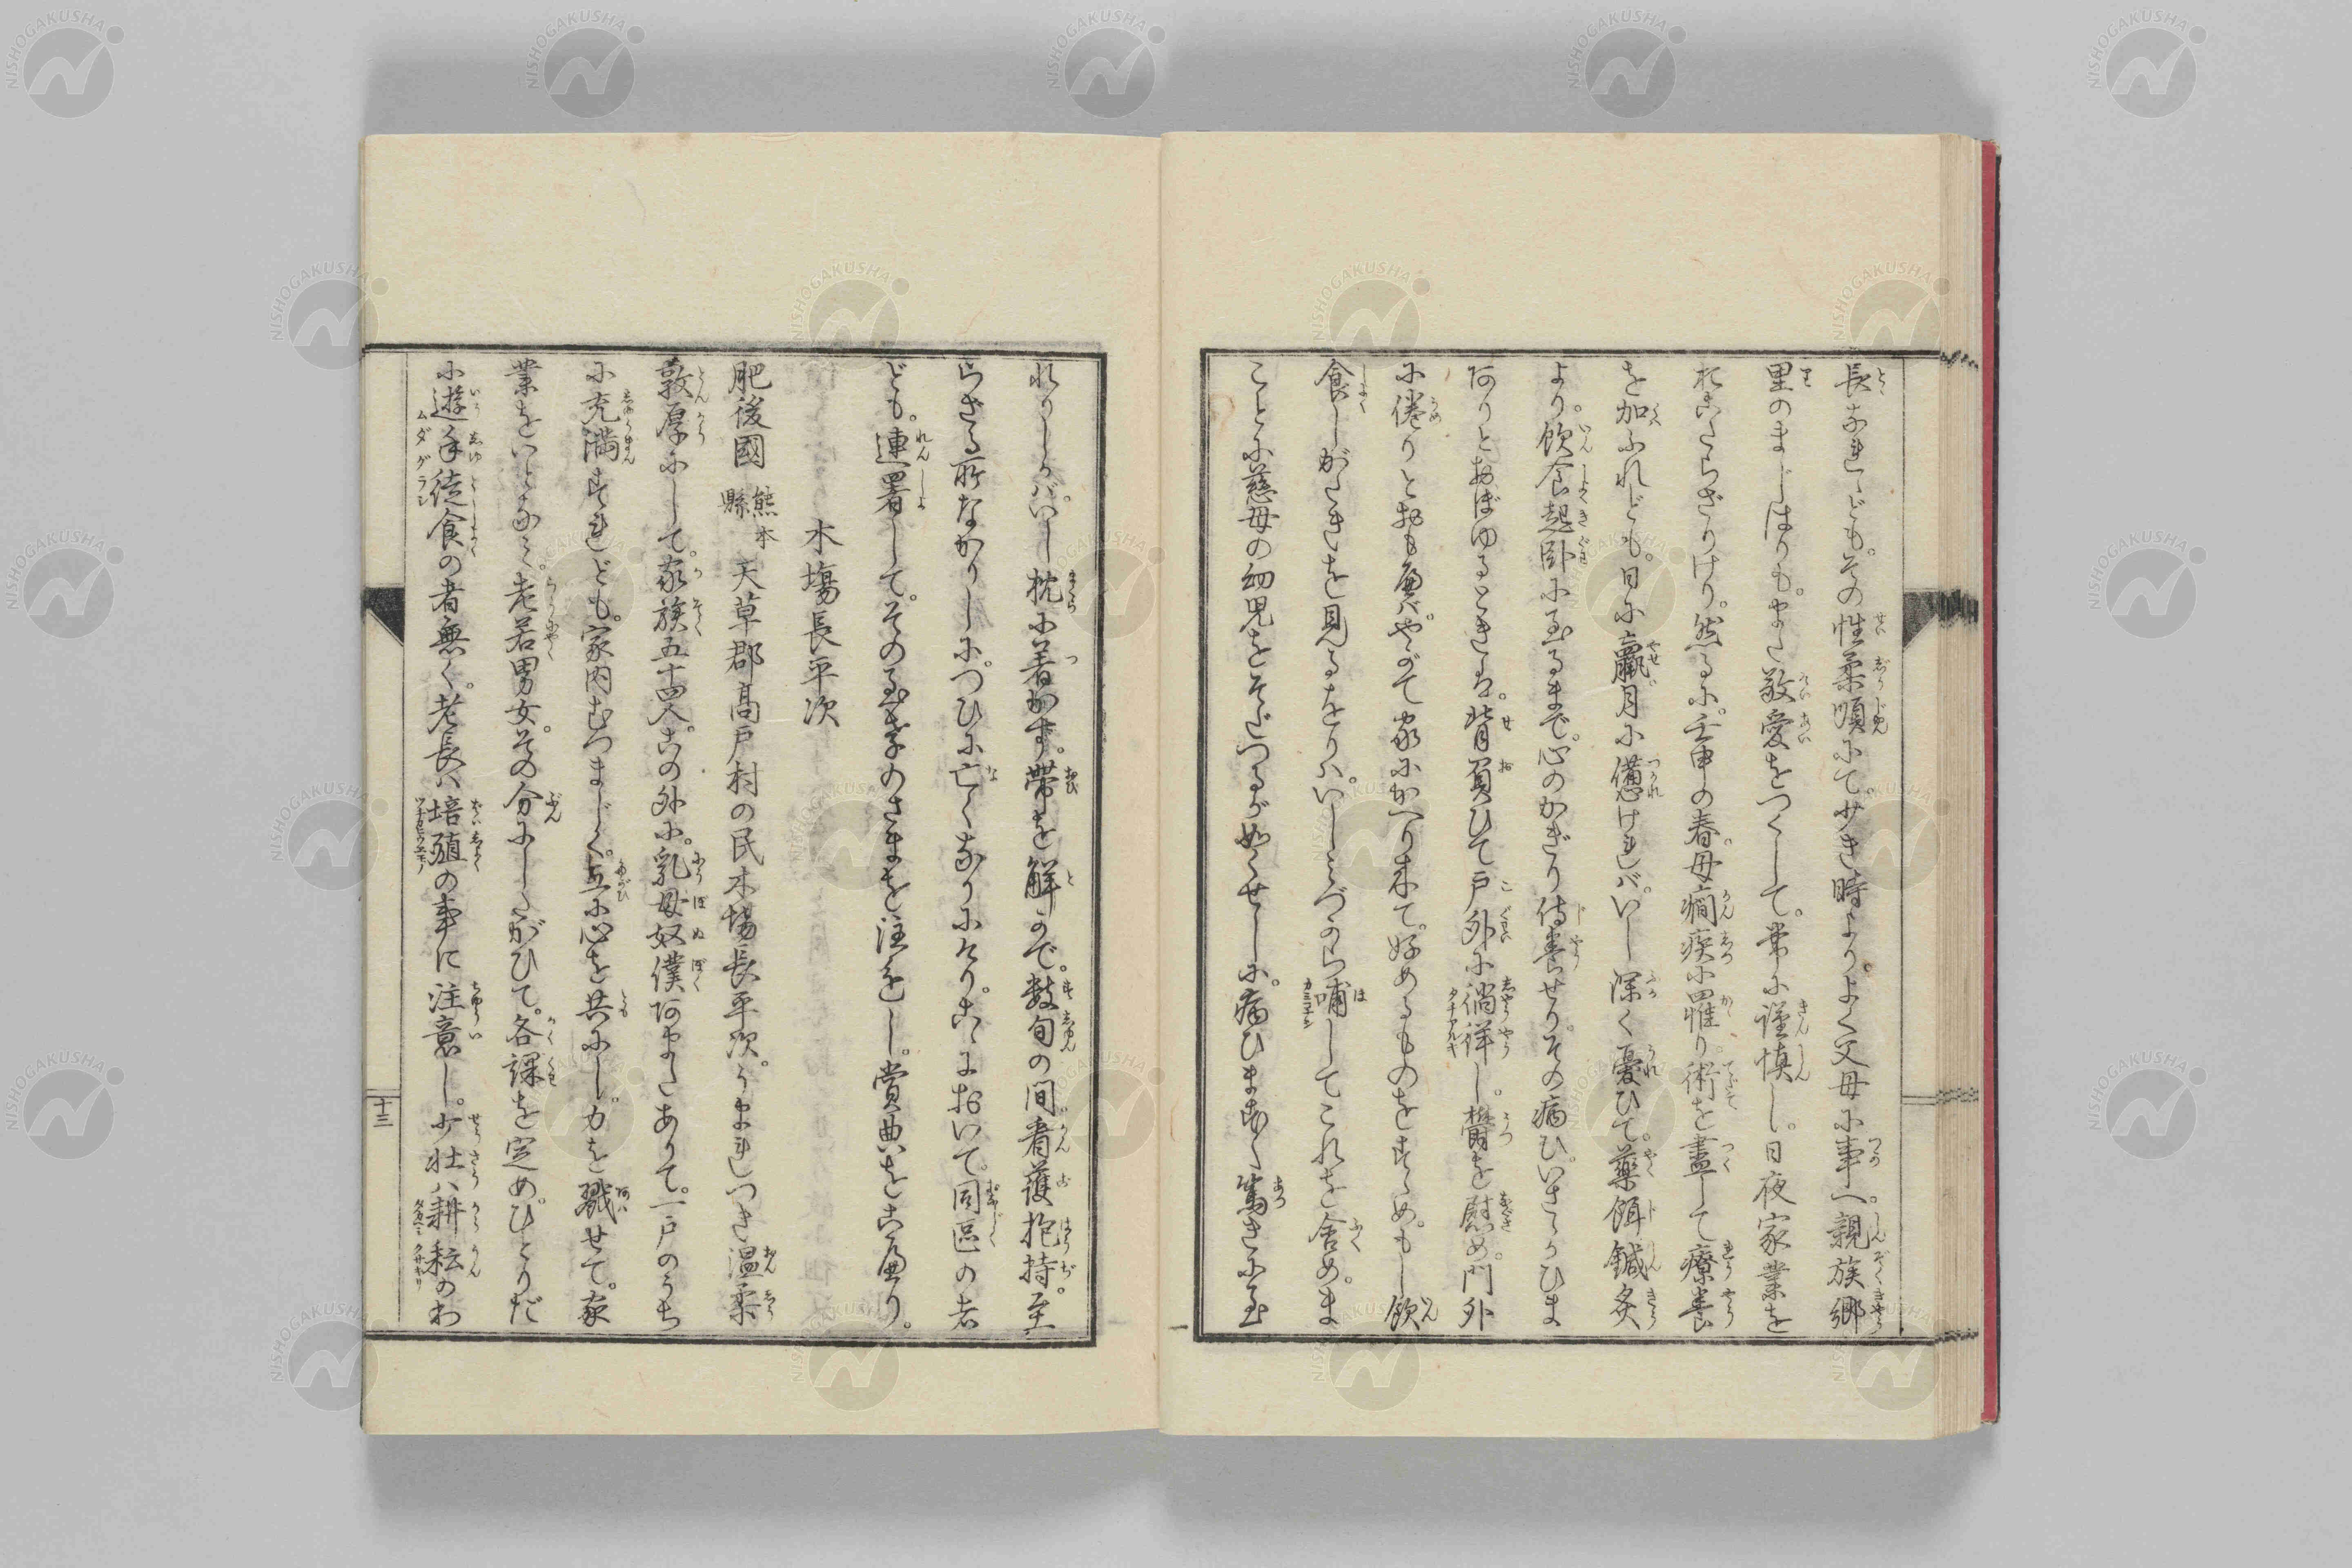 長なれども。その性柔順にて。少き時より。よく父母に事へ。親族郷
里のまじはりも。また敬愛をつくして。常に謹慎し。日夜家業を
おこたらざりけり。然るに。壬申の春。母癇疾に罹り。術を盡して療養
を加ふれども。日に羸。月に憊けれバ。いし深く憂ひて。藥餌鍼灸
より。飲食起卧に至るまで。心のかぎり侍養せり。その病ひ。いさゝかひま
ありとおぼゆるときハ。背負ひて戸外に徜徉し。鬱を慰め。門外
に倦りとおもへバ。やがて家にかへり来て。好めるものをすゝめ。もし飲
食しがたきを見るをりハ。いしみづから哺してこれを含め。ま
ことに慈母の幼児をそだつるが如くせしに。病ひますます篤きに至
れりしかバ。いし枕に着かず。帯を解かで。數旬の間。看護抱持。至
らざる所なかりしに。つひに亡くなりにけり。こゝにおいて。同區の者
ども。連署して。そのの至孝のさまを注進し。賞典をこへり。
木塲長平次
肥後國 熊本縣 天草郡高戸村の民木塲長平次。うまれつき温柔
敦厚にして。家族五十四人。この外に。乳母奴僕あまたありて。一戸のうち
に充満すれども。家内むつまじく。互に心を共にし。力を戮せて。家
業をいとなみ。老若男女。その分にしたがひて。各課を定め。ひとりだ
に遊手徒食の者無く。老長ハ培殖の事に注意し。少壮ハ耕耘のわ
十三
NISHOGAKUSHA